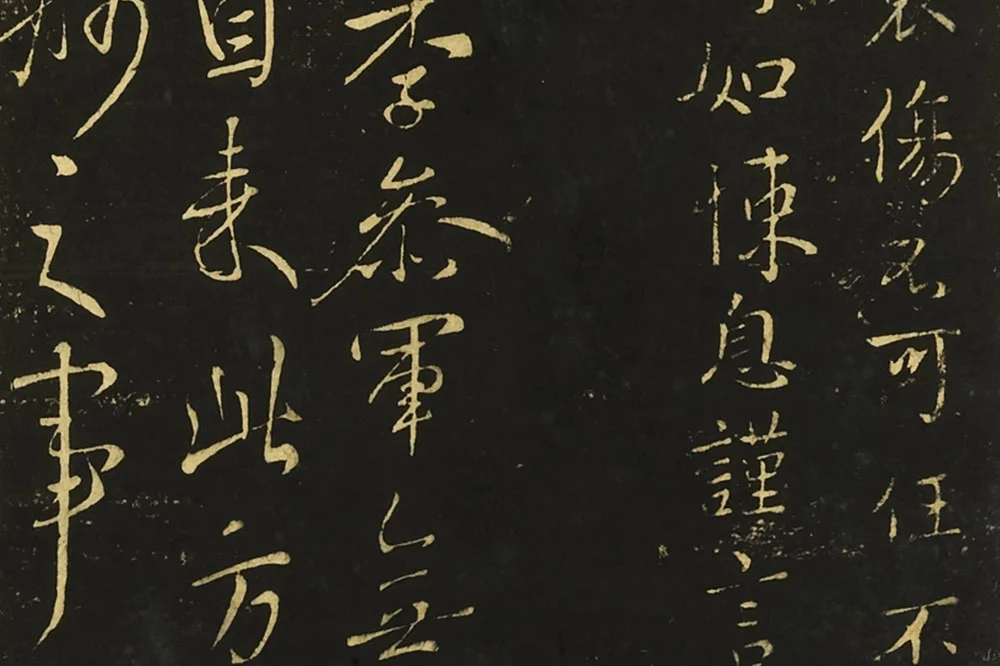 傷不可任不
如悚息謹言
李參軍
來此方
之事